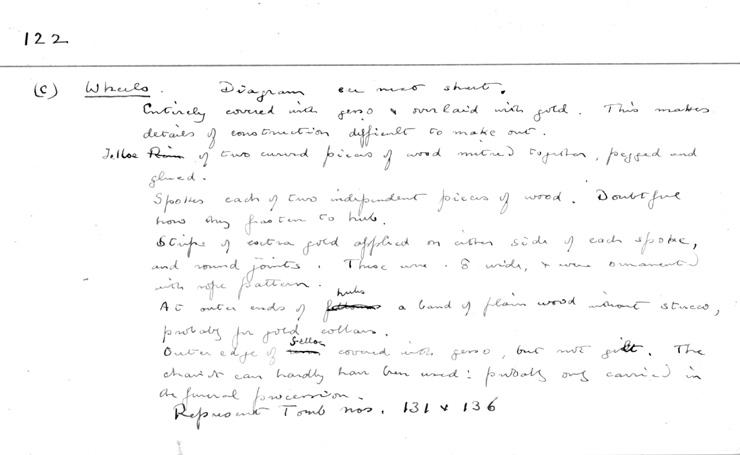 122
(C) Wheels. Diagram on next sheet.
Entirely covered with gesso & overlaid with gold. This makes
details of construction difficult to make out.
Felloe Rim of two curved pieces of wood mitred together, pegged and
glued.
Spokes each of two independent pieces of wood. Doubtful
how they fasten to hub.
Strips of extra gold applied on either side of each spoke,
and round joints. These were .8 wide, & were ornamented
with rope pattern.
hubs
At outer ends of a band of plain wood without stucco,
probably for gold collars.
felloe
Outer edge of covered with gesso, but not gilt. The
chariot can hardly have been used: probably only carried in
the funeral procession.
Represent Tomb nos. 131 & 136